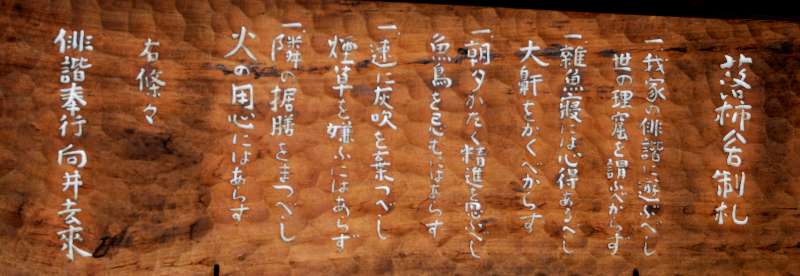 落柿舎制札
一我家の俳諧に遊ぶべし
世の理窟を謂ふべからず
一雑魚寝には心得あるべし
大鼾をかくべからず
一朝夕かたく精進を思ふべし
魚鳥を忌むにはあらす
一速に灰吹を棄つべし
煙草を嫌ふにはあらず
一隣の据膳をまつべし
火の用心にはあらす
右條々
俳諧奉行 向井去來